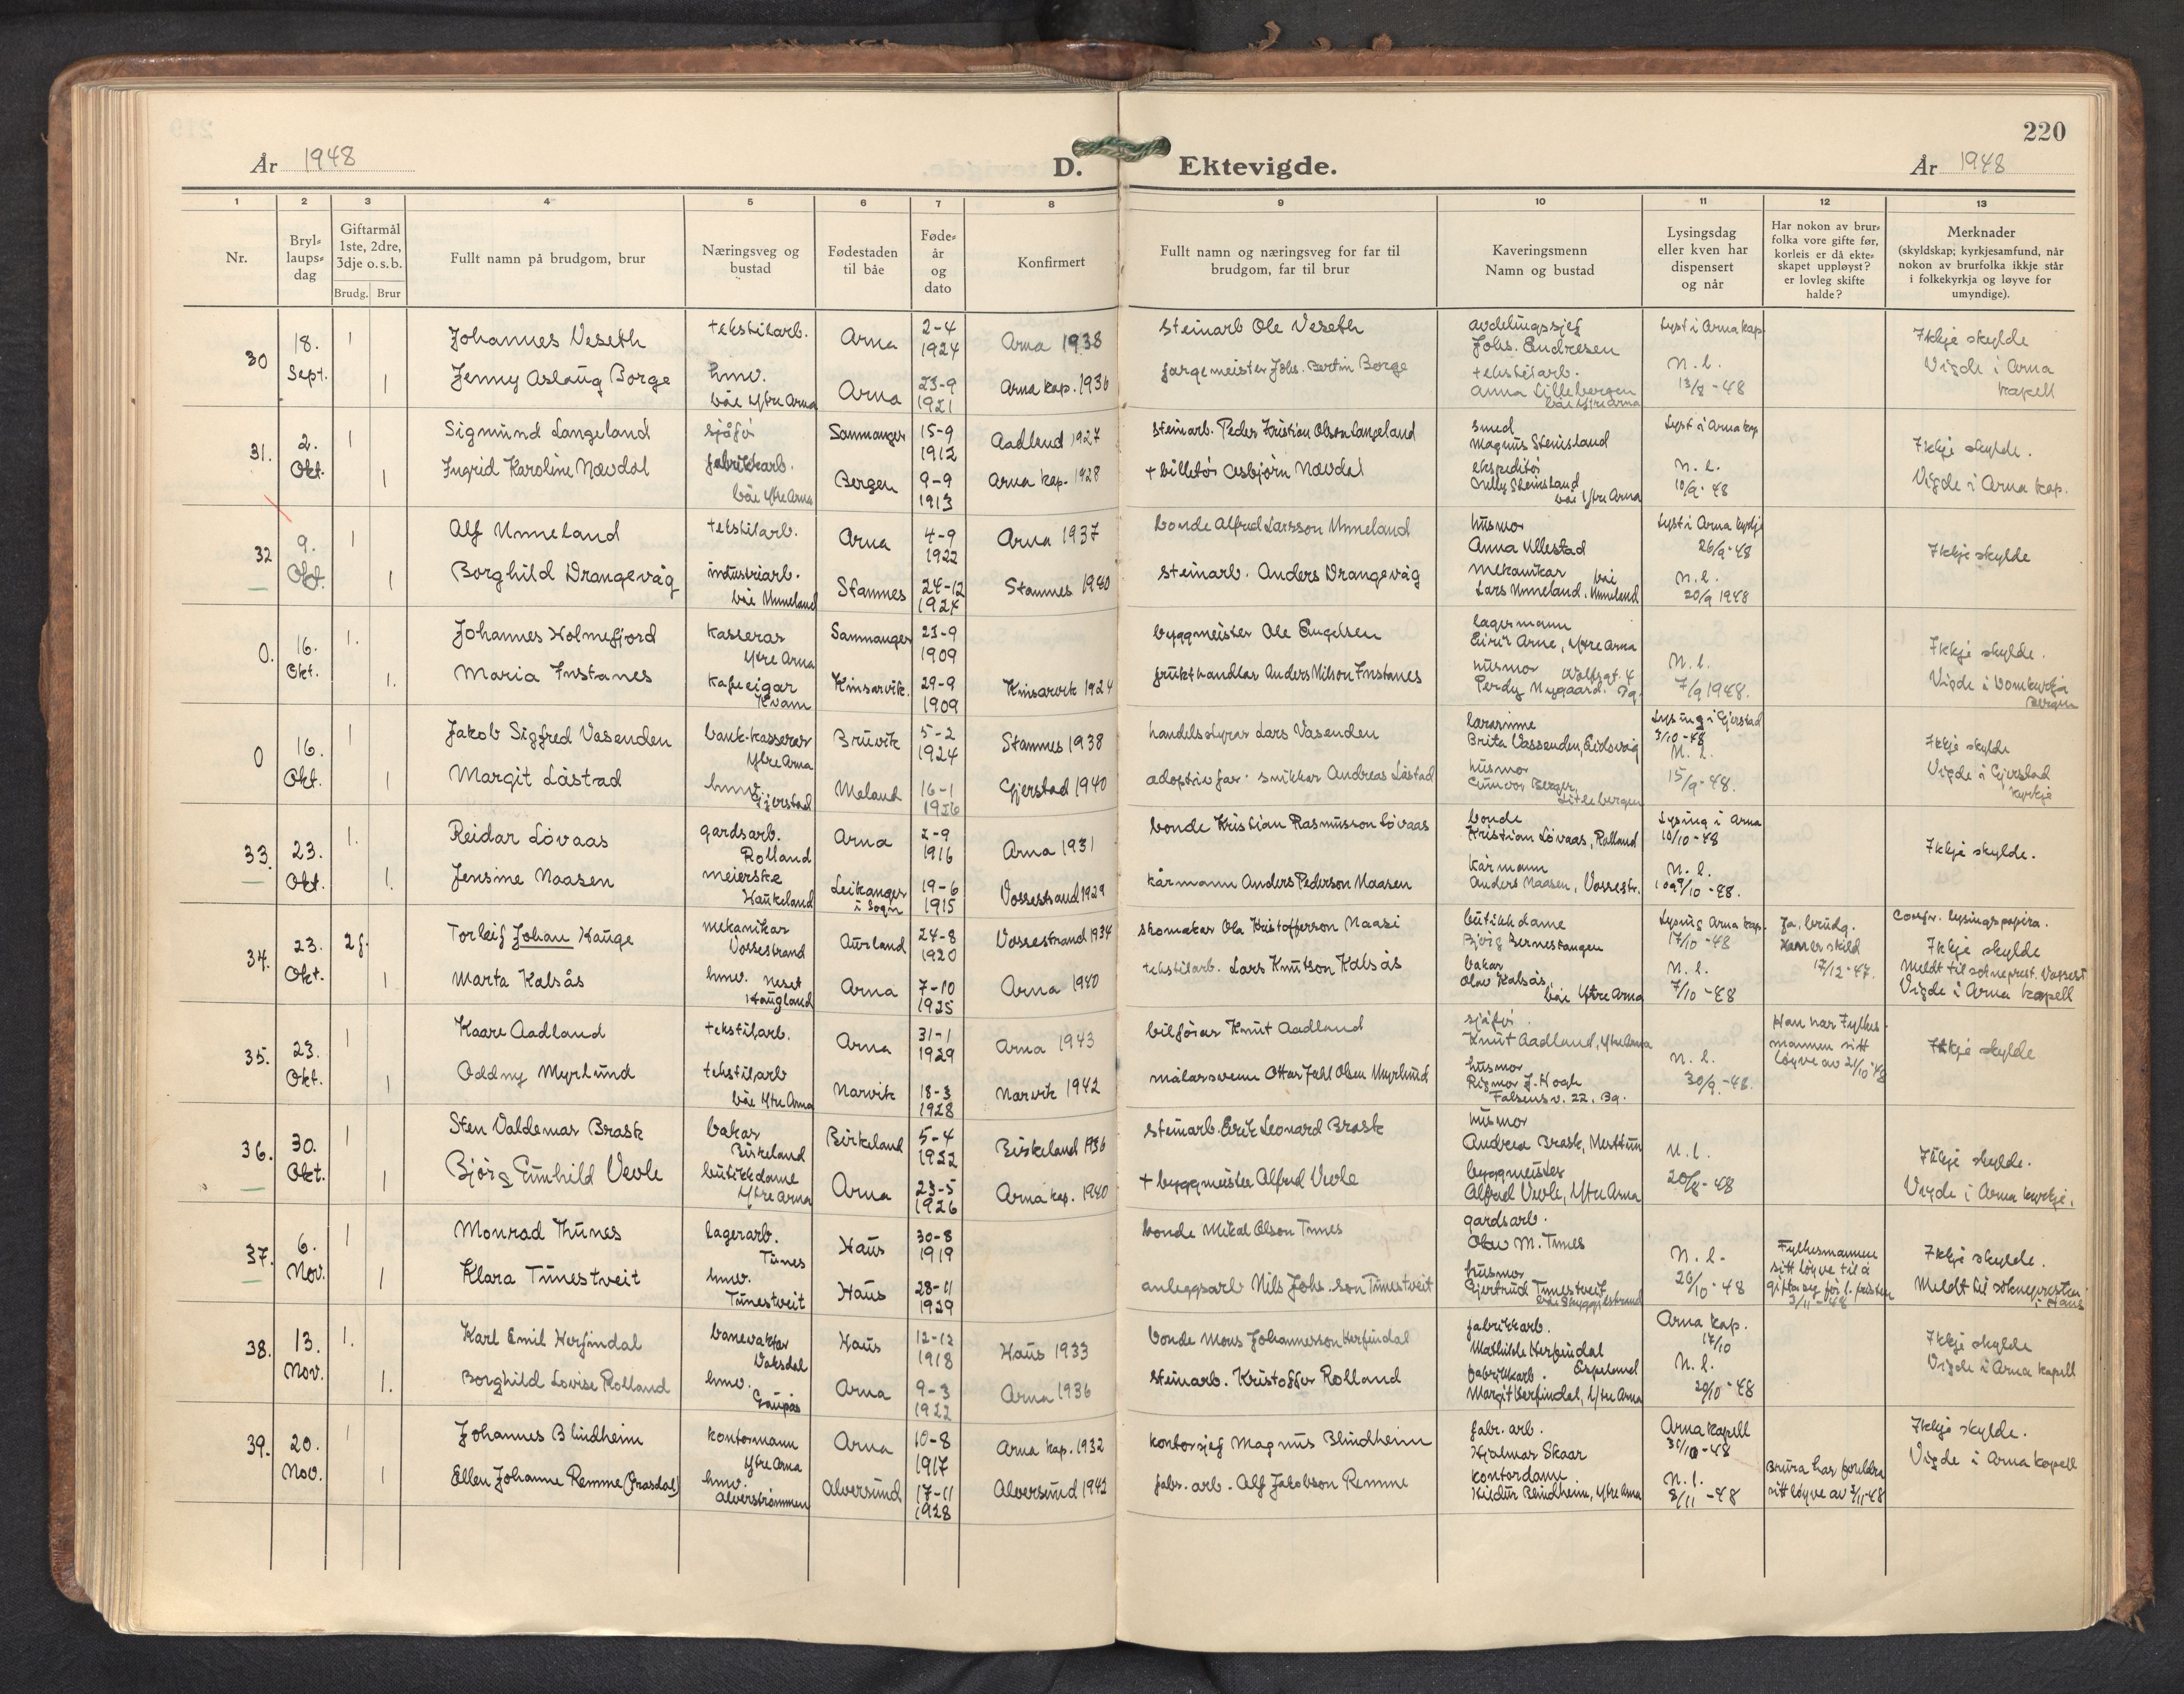 220
År 1948 D. Ektevigde. År 1948
1 2 3 4 5 6 7 8 9 10 11 12 13
Nr.
Bryl-
laups-
dag
Giftarmål
1ste, 2dre,
3dje o.s.b.
Brudg. Brur
Fullt namn på brudgom, brur
Næringsveg og
bustad
Fødestaden
til båe
Føde-
år
og
dato
Konfirmert
Fullt namn og næringsveg for far til
brudgom, far til brur
Kaveringsmenn
Namn og bustad
Lysingsdag
eller kven har
dispensert
og når
Har nokon av brur-
folka vore gifte før,
korleis er då ekte-
skapet uppløyst?
er lovleg skifte
halde?
Merknader
(skyldskap; kyrkjesamfund, når
nokon av brurfolka ikkje står
i folkekyrkja og løyve for
umyndige).
30 18. Sept.
1 Johannes Veseth tekstilarb. Arna 2-4 1924 Arna 1938 steinarb Ole Veseth
1 Jenny Aslaug Borge hmv. båe Ytre Arna Arna 23-9 1921 Arna kap. 1936 fargemeister Johs. Bertin Borge
avdelingssjef
Johs. Endresen
tekstilarb.
Anna Lillebergen
båe Ytre Arna
Lyst i Arna kap
N. l.
13/8 -48
Ikkje skylde
Vigde i Arna
kapell
31. 2. Okt.
1 Sigmund Langeland sjåfør Sammanger 15-9 1912 Aadland 1927 steinarb. Peder Kristian Olson Langeland
1 Ingrid Karoline Nævdal fabrikkarb. båe Ytre Arna Bergen 9-9 1913 Arna kap. 1928 + billetør Asbjørn Nævdal
smed
Magnus Steinsland
ekspeditør
Steinsland
båe Ytre Arna
Lyst i Arna kap
N. l.
10/9 -48
Ikkje skylde.
Vigde i Arna kap.
32 9. Okt.
1 Alf Unneland tekstilarb. Arna 4-9 1922 Arna 1937 bonde Alfred Larsson Unneland
1 Borghild Drangevåg industriarb. båe Unneland Stamnes 24-12 1924 Stamnes 1940 steinarb. Anders Drangevåg
husmor
Anna Ullestad
mekanikar båe
Lars Unneland, Unneland
Lyst i Arna kyrkje
26/9 -48
N. l.
20/9 1948
Ikkje skylde
0. 16. Okt.
1. Johannes Holmefjord kasserar Ytre Arna Sammanger 23-9 1909 byggmeister Ole Engelsen
1. Maria Instanes kafeeigar Kvam Kinsarvik. 29-9 1909 Kinsarvik 1924 frukthandlar Anders Nilson Instanes
lagermann
Eirik Arne, Ytre Arna
husmor
Perdy Nygaard. Bg.
N. l.
7/9 1948.
Ikkje skylde.
Vigde i Domkyrkja
Bergen
0 16. Okt.
1 Jakob Sigfred Vasenden bank-kasserar Ytre Arna Bruvik 5-2 1924 Stamnes 1938 handelsstyrar Lars Vasenden
1 Margit Låstad hmv. Gjerstad Meland 16-1 1926 Gjerstad 1940 adoptivfar: snikkar Andreas Låstad
lærarinne
Brita Vassenden, Eidsvåg
husmor
Gunvor Berger,
Litlebergen
Lysing i Gjerstad
3/10 -48
N. l.
15/9 -48.
Ikkje skylde
Vigde i Gjerstad
kyrkje
33. 23. Okt.
1. Reidar Løvaas gardsarb. Rolland Arna 2-9 1916 Arna 1931 bonde Kristian Rasmusson Løvaas
1. Jensine Naasen meierske Haukeland Leikanger i Sogn 19-6 1915 Vossestrand 1929 kårmann Anders Pederson Naasen
bonde
Kristian Løvaas, Rolland
kårmann
Anders Naasen, Vossestr.
Lysing i Arna
10/10 -48
N. l.
9/10 -48.
Ikkje skylde.
34. 23. Okt.
2 g. Torleif Johan Hauge mekanikar Vossestrand Aurland 24-8 1920 Vossestrand 1934 skomakar Ola Kristofferson Naasi
1 Marta Kalsås hmv. Neset Haugland Arna 7-10 1925 Arna 1940 tekstilarb. Lars Knutson Kalsås
butikkdame
Bernestangen
bakar
Olav Kalsås,
båe Ytre Arna
Lysing Arna kap.
17/10 -48
N. l.
7/10 -48
Ja, brudg.
Han er skild
17/12 -47.
Confr. lysingspapira.
Ikkje skylde
Meldt til sokneprest. Vossest
Vigde i Arna kapell
35. 23. Okt.
1 Kaare Aadland tekstilarb. Arna 31-1 1929 Arna 1943 bilførar Knut Aadland
1 Oddny Myrlund tekstilarb båe Ytre Arna Narvik 18-3 1928 Narvik 1942 målarsvenn Ottar Juhl Olsen Myrlund
sjåfør.
Knut Aadland, Ytre Arna
husmor
Rigmor J. Hogh
Falsens v. 22, Bg.
N. l.
30/9 -48.
Han har Fylkes-
mannen sitt
løyve av 21/10 -48
Ikkje skylde
36. 30. Okt.
1 Sten Valdemar Brask bakar Birkeland Birkeland 5-4 1922 Birkeland 1936 steinarb. Erik Leonard Brask
1 Bjørg Gunhild Vevle butikkdame Ytre Arna Arna 23-5 1926 Arna kap. 1940 + byggmeister Alfred Vevle
husmor
Andrea Brask, Nesttun
byggmeister
Alfred Vevle, Ytre Arna
N. l.
20/8 -48
Ikkje skylde.
Vigde i Arna kyrkje.
37. 6. Nov.
1 Monrad Thunes lagerarb. Tunes Haus 30-8 1919 bonde Mikal Olson Tunes
1 Klara Tunestveit hmv. Tunestveit Haus 28-11 1929 anleggsarb Nils Johs.son Tunestveit
gardsarb.
Olav M. Tunes
husmor
Gjertrud Tunestveit
N. l.
26/10 -48
Fylkesmannen
sitt løyve til å
gifta seg før l. fristen
3/11 -48
Ikkje skylde.
Meldt til soknepresten
i Haus
38. 13. Nov.
1. Karl Emil Herfindal banevaktar Vaksdal Haus 12-12 1918 Haus 1933 bonde Mons Johannesson Herfindal
1. Borghild Lovise Rolland hmv. Gaupås Arna 9-3 1922 Arna 1936 steinarb. Kristoffer Rolland
fabrikkarb.
Mathilde Herfindal
fabrikkarb. Espeland
Margit Herfindal, Ytre Arna
Arna kap.
17/10
N. l.
20/10 -48
Ikkje skylde
Vigde i Arna kapell
39. 20. Nov.
1 Johannes Blindheim kontormann Ytre Arna Arna 10-8 1917 Arna kap. 1932 kontorsjef Magnus Blindheim
1 Ellen Johanne Remme (Frasdal) hmv. Alverstrømmen Alversund 17-11 1928 Alversund 1942 fabr. arb. Alf Jakobson Remme
fabr. arb.
Hjalmar Skaar
kontordame
Hildur Blindheim, Ytre Arna
Arna kapell
31/10 -48
N. l.
8/11 -48
Brura har foreldra
sitt løyve av 3/11 -48
Ikkje skylde.
Vigde i Arna kapell